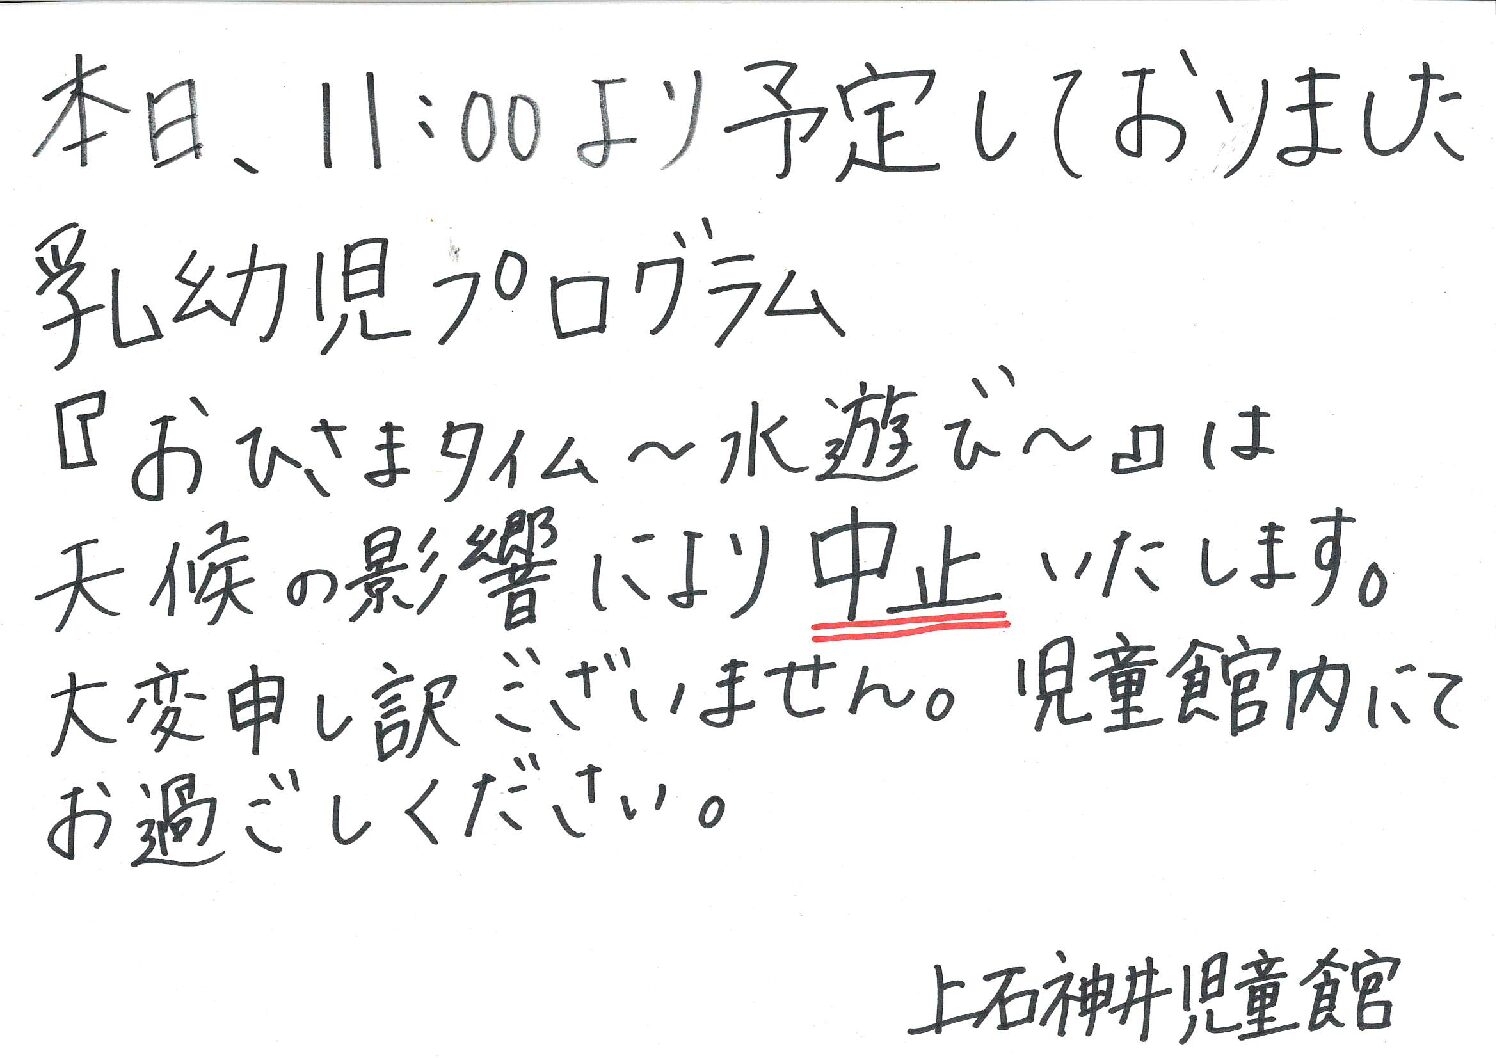 本日、11:00より予定しておりました
乳幼児プログラム
『おひさまタイム～水遊び～』は
天候の影響により中止いたします。
大変申し訳ございません。児童館内にて
お過ごしください。
上石神井児童館